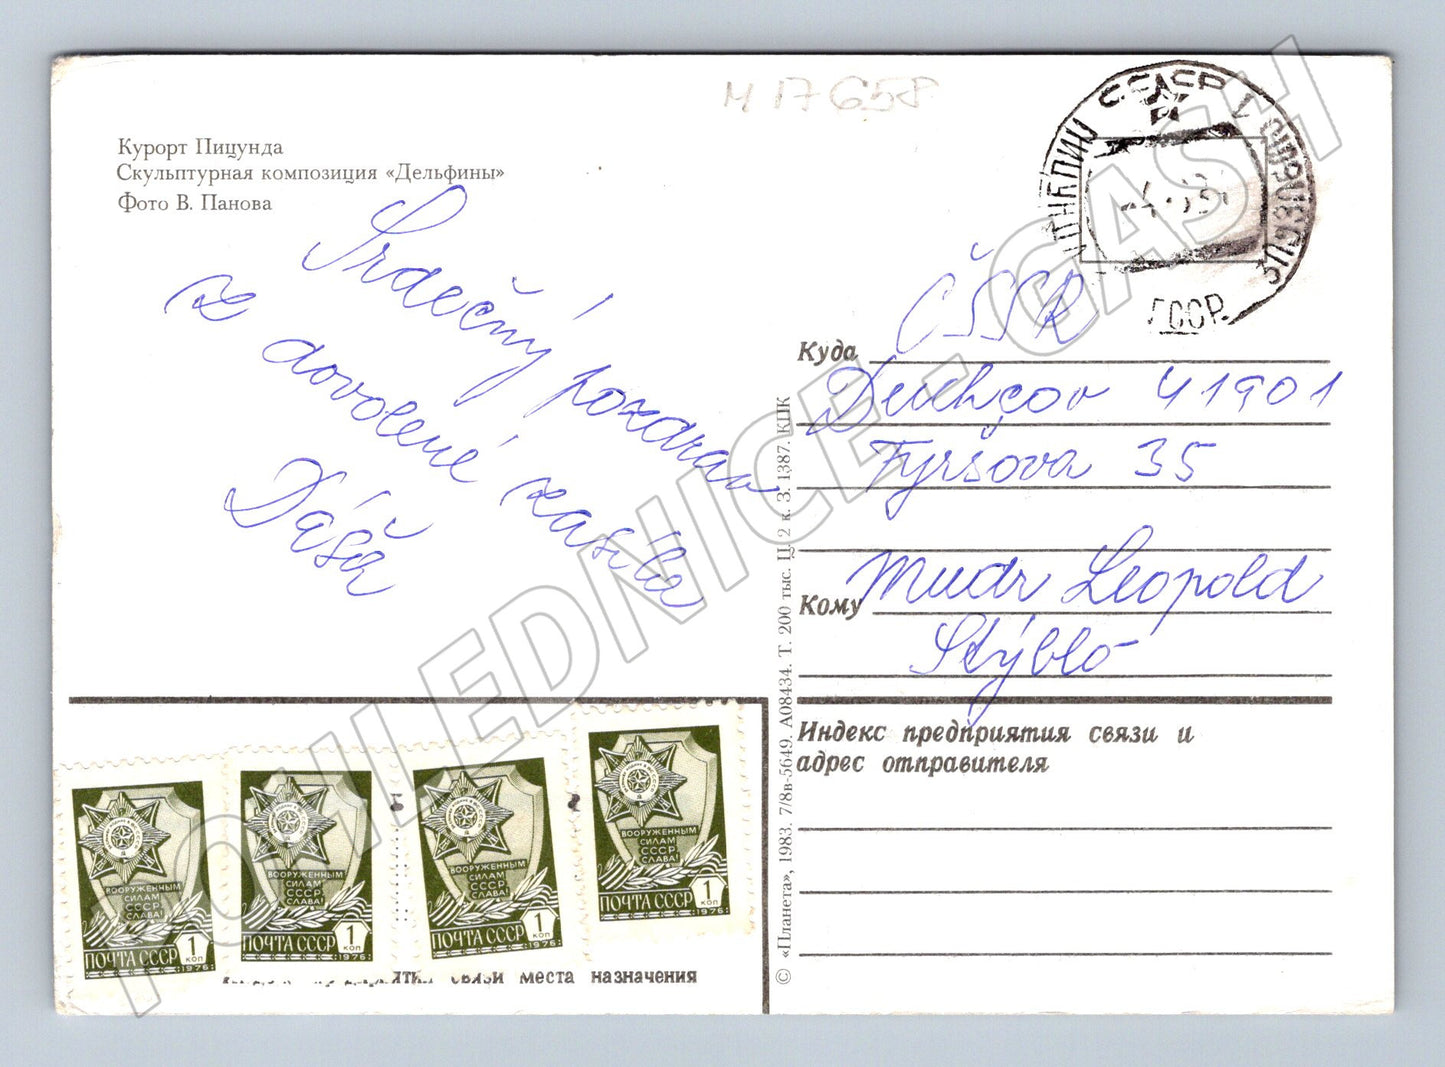 M 17658
Курорт Пицунда
Скульптурная композиция «Дельфины»
Фото В. Панова
Srdečný pozdrav
z dovolené zasílá
Dáša
СССР
Куда
ČSSR
Duchcov 41901
Tyršova 35
Кому
Mudr Leopold
Stýbló
Индекс предприятия связи и
адрес отправителя
© «Планета», 1983. 7/8в-5649. А08434. Т. 200 тыс. Ц. 2 к. З. 1387. КПК
ВООРУЖЕННЫМ
СИЛАМ
СССР
СЛАВА!
1
КОП
ПОЧТА СССР
·1976·
ВООРУЖЕННЫМ
СИЛАМ
СССР
СЛАВА!
1
КОП
ПОЧТА СССР
·1976·
ВООРУЖЕННЫМ
СИЛАМ
СССР
СЛАВА!
1
КОП
ПОЧТА СССР
·1976·
ВООРУЖЕННЫМ
СИЛАМ
СССР
СЛАВА!
1
КОП
ПОЧТА СССР
·1976·
связи места назначения
POHLEDNICE - GASH